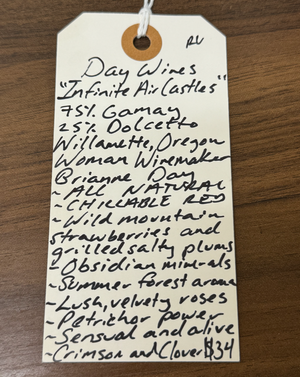 RL
Day Wines
"Infinite Air Castles"
75% Gamay
25% Dolcetto
Willamette, Oregon
Woman Winemaker
Brianne Day
- ALL NATURAL
- CHILLABLE RED
- Wild mountain
strawberries and
grilled salty plums
- Obsidian minerals
- Summer forest aroma
- Lush, velvety roses
- Petrichor power
- Sensual and alive
- Crimson and Clover $34